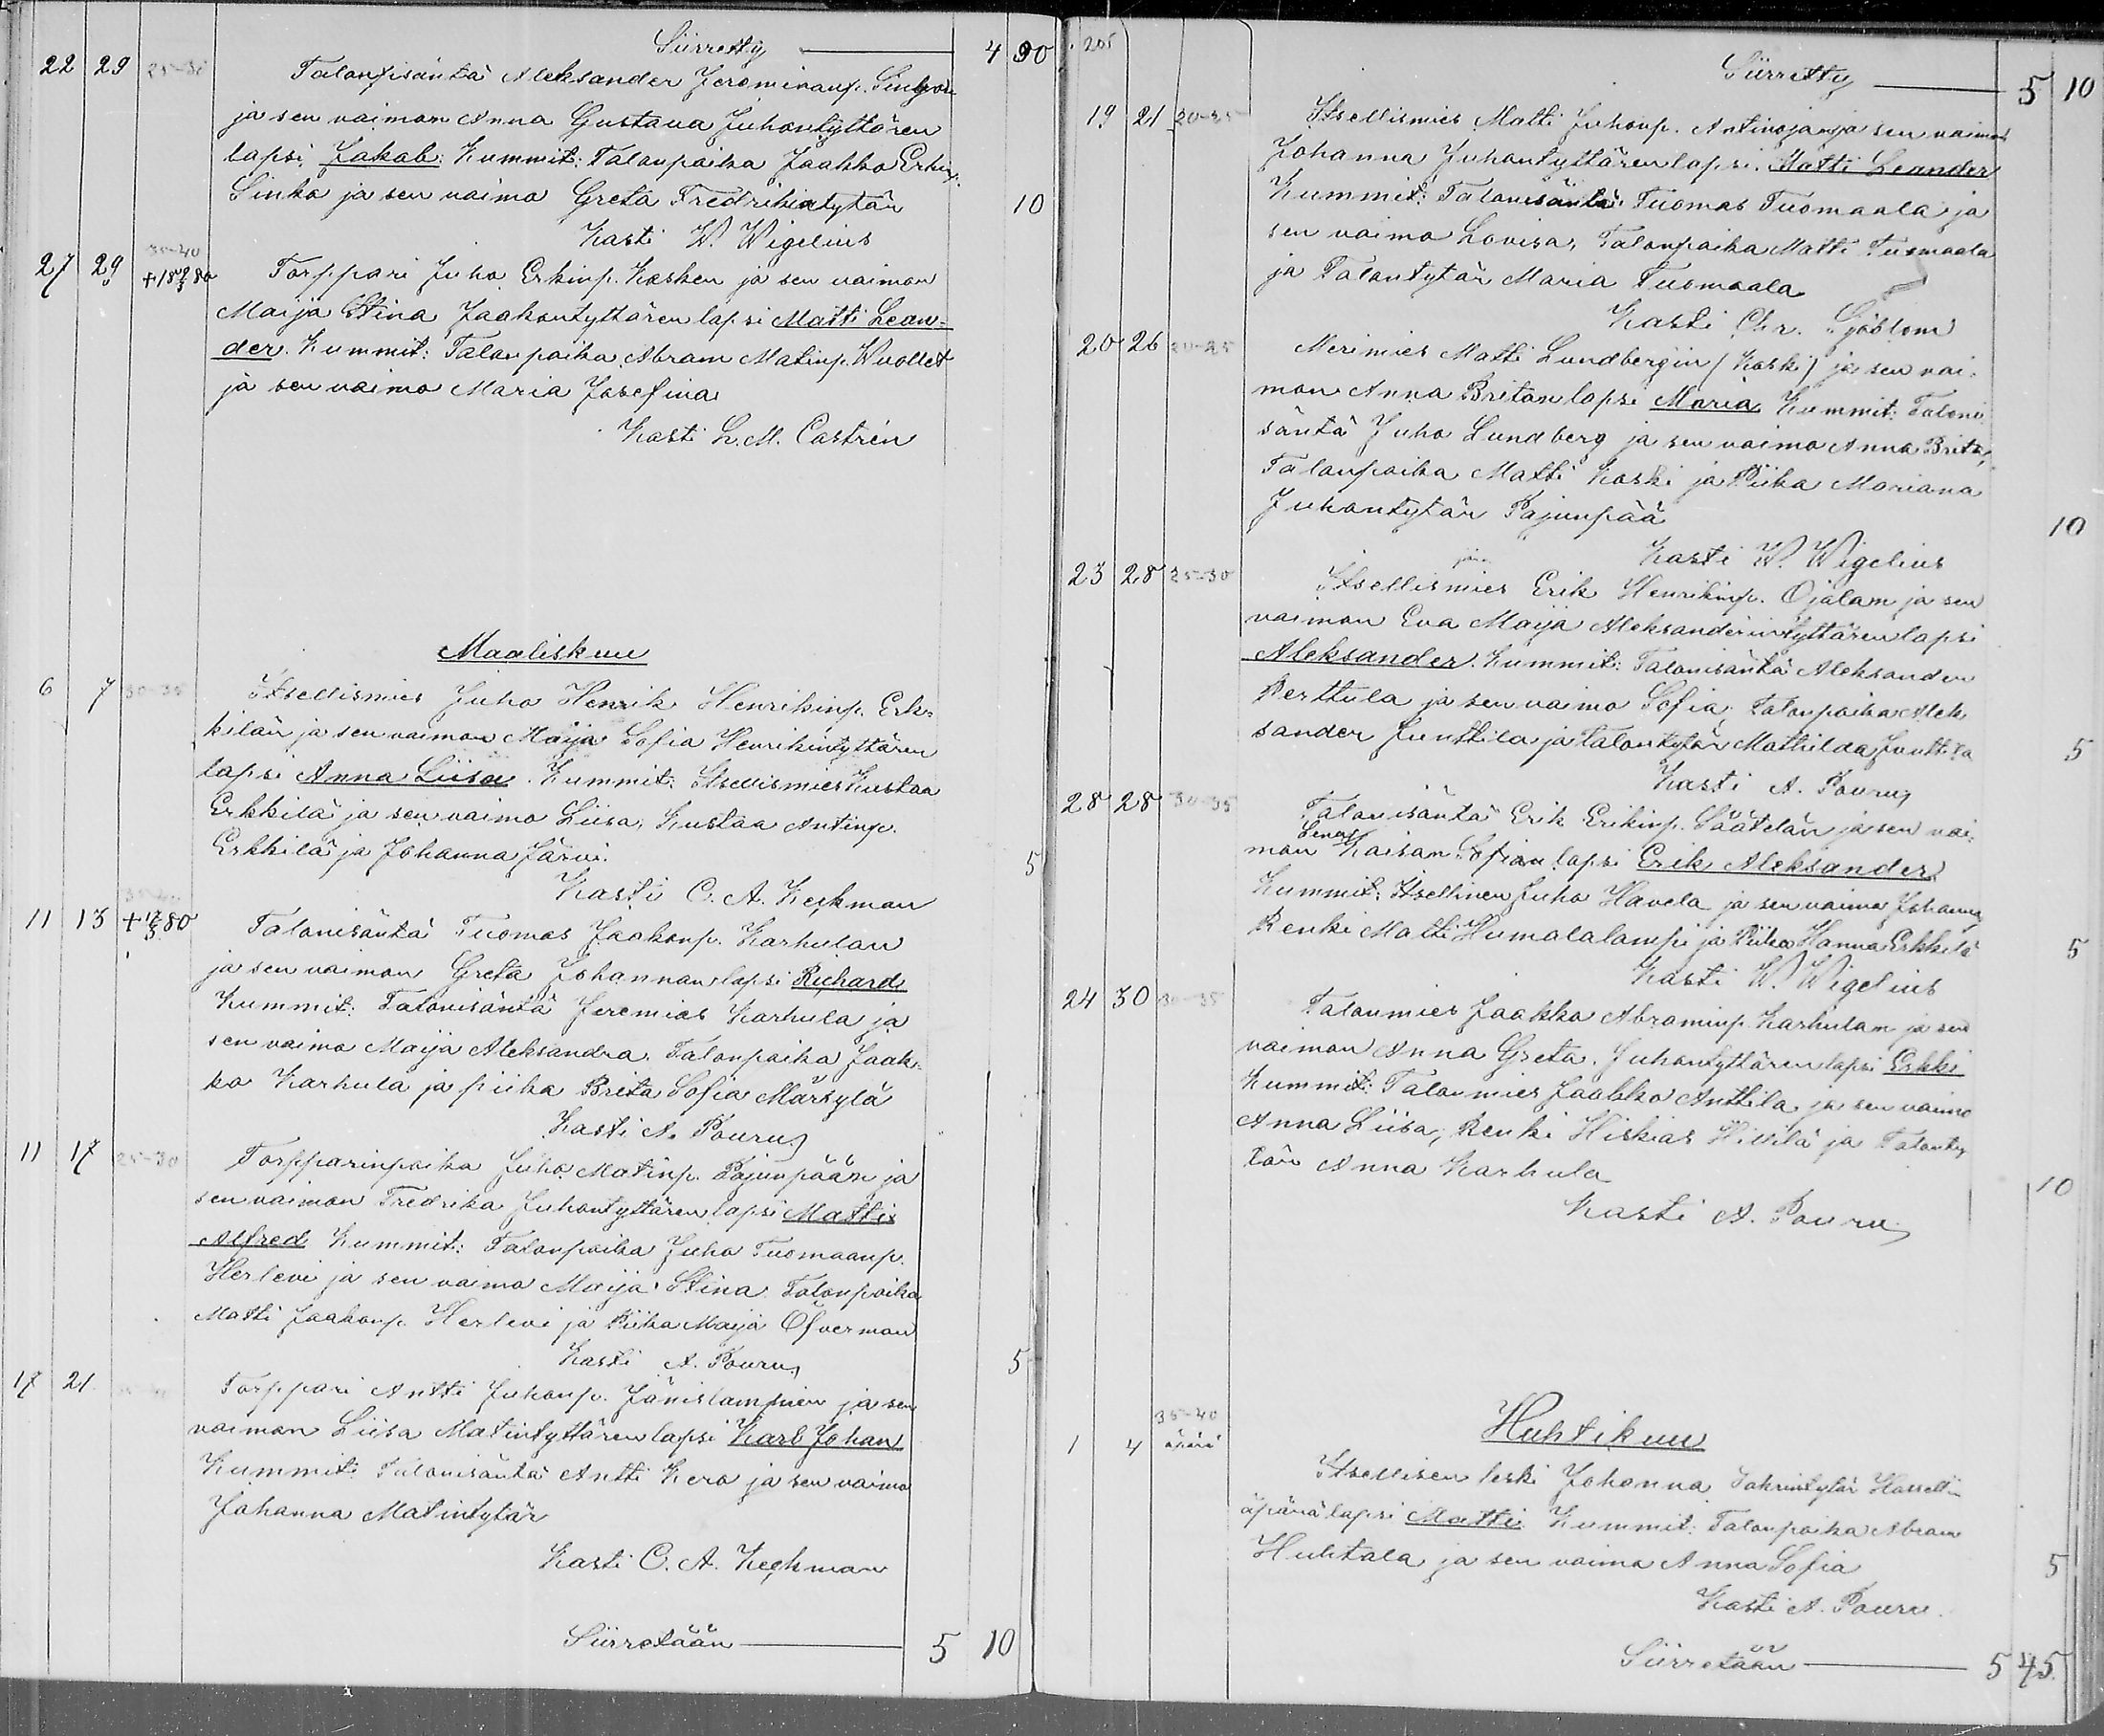 Siirretty 4 90
22 29 25-30 Talonisäntä Aleksander Jereminanp.
ja sen vaimon Anna Gustava Juhontyttären
lapsi Jakab. Kummit: Talonpoika Jaakko Erkinp.
Sinko ja sen vaimo Greta Fredrikintytär 10
Kasti W. Wigelius
35-40
27 29 +18 80 Torppari Juho Erkinp. Kosken ja sen vaimon
Maija Stina Jaakontyttären lapsi Matti Lean-
der. Kummit: Talonpoika Abram Matinp. Wuollet
ja sen vaimo Maria Josefina
Kasti L. M. Castrén
Maaliskuu
6 7 30-35 Itsellismies Juho Henrik Henrikinp. Erk-
kilän ja sen vaimon Maija Sofia Henrikintyttären
lapsi Anna Liisa. Kummit: Itsellismies Kustaa
Erkkilä ja sen vaimo Liisa, Kustaa Antinp.
Erkkilä ja Johanna Järvi. 5
Kasti C. A. Keckman
35-40
11 13 + 80 Talonisäntä Tuomas Jaakonp. Karhulan
ja sen vaimon Greta Johannan lapsi Richard
Kummit: Talonisäntä Jeremias Karhula ja
sen vaimo Maija Aleksandra. Talonpoika Jaak-
ko Karhula ja piika Brita Sofia Märsylä
Kasti A. Pouru
11 17 25-30 Torpparinpoika Juho Matinp. Pajunpään ja
sen vaimon Fredrika Juhontyttären lapsi Matti
Alfred Kummit: Talonpoika Juho Tuomaanp.
Herlevi ja sen vaimo Maija Stina Talonpoika
Matti Jaakonp. Herlevi ja Piika Maija Öfverman
Kasti A. Pouru 5
17 21 Torppari Antti Juhonp. Jänislammin ja sen
vaimon Liisa Matintyttären lapsi Karl Johan
Kummit: Talonisäntä Antti Kero ja sen vaimo
Johanna Matintytär
Kasti C. A. Keckman
Siirretään 5 10
205
Siirretty 5 10
19 21 20-25 Itsellismies Matti Juhonp. Antinojan ja sen vaimon
Johanna Juhontyttären lapsi. Matti Leander
Kummit: Talonisäntä Tuomas Tuomaala ja
sen vaimo Lovisa, Talonpoika Matti Tuomaala
ja Talontytär Maria Tuomaala
Kasti Chr. Sjöblom
20 26 20-25 Merimies Matti Lundbergin (Koski) ja sen vai-
mon Anna Britan lapsi Maria Kummit: Taloni-
säntä Juho Lundberg ja sen vaimo Anna Brita,
Talonpoika Matti Koski ja Piika Mariana
Juhontytär Pajunpää 10
Kasti W. Wigelius
23 28 25-30 Itsellismies Erik Henrikinp. Ojalan ja sen
vaimon Eva Maija Aleksanderintyttären lapsi
Aleksander. Kummit: Talonisäntä Aleksander
Perttula ja sen vaimo Sofia, Talonpoika Alek
sander Junttila ja talontytär Mathilda Junttila 5
Kasti A. Pouru
28 28 30-35 Talonisäntä Erik Erikinp. Säätelän ja sen vai-
mon Kaisan Sofian lapsi Erik Aleksander
Kummit: Itsellinen Juho Havela ja sen vaimo Johanna,
Renki Matti Humalalampi ja Piika Hanna Erkkilä 5
Kasti W. Wigelius
24 30 30-35 Talonmies Jaakko Abraminp. Karhulan ja sen
vaimon Anna Greta Juhontyttären lapsi Erkki
Kummit: Talonmies Jaakko Anttila ja sen vaimo
Anna Liisa, Renki Hiskias Hillilä ja Talonty
tär Anna Karhula 10
Kasti A. Pouru
Huhtikuu
35-40
1 4 äpärä Itsellisen leski Johanna
äpärä lapsi Matti Kummit: Talonpoika Abram
Huhtala ja sen vaimo Anna Sofia 5
Kasti A. Pouru.
Siirretään 5 45